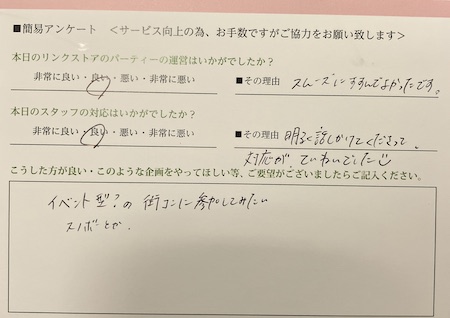 ■簡易アンケート ＜サービス向上の為、お手数ですがご協力をお願い致します＞
本日のリンクストアのパーティーの運営はいかがでしたか？
非常に良い・良い・悪い・非常に悪い
■その理由 スムーズにすすんでよかったです。
本日のスタッフの対応はいかがでしたか？
非常に良い・良い・悪い・非常に悪い
■その理由 明るく話しかけてくださって、
対応が、ていねいでした
こうした方が良い・このような企画をやってほしい等、ご要望がございましたらご記入ください。
イベント型？の街コンに参加してみたい
スノボとか.